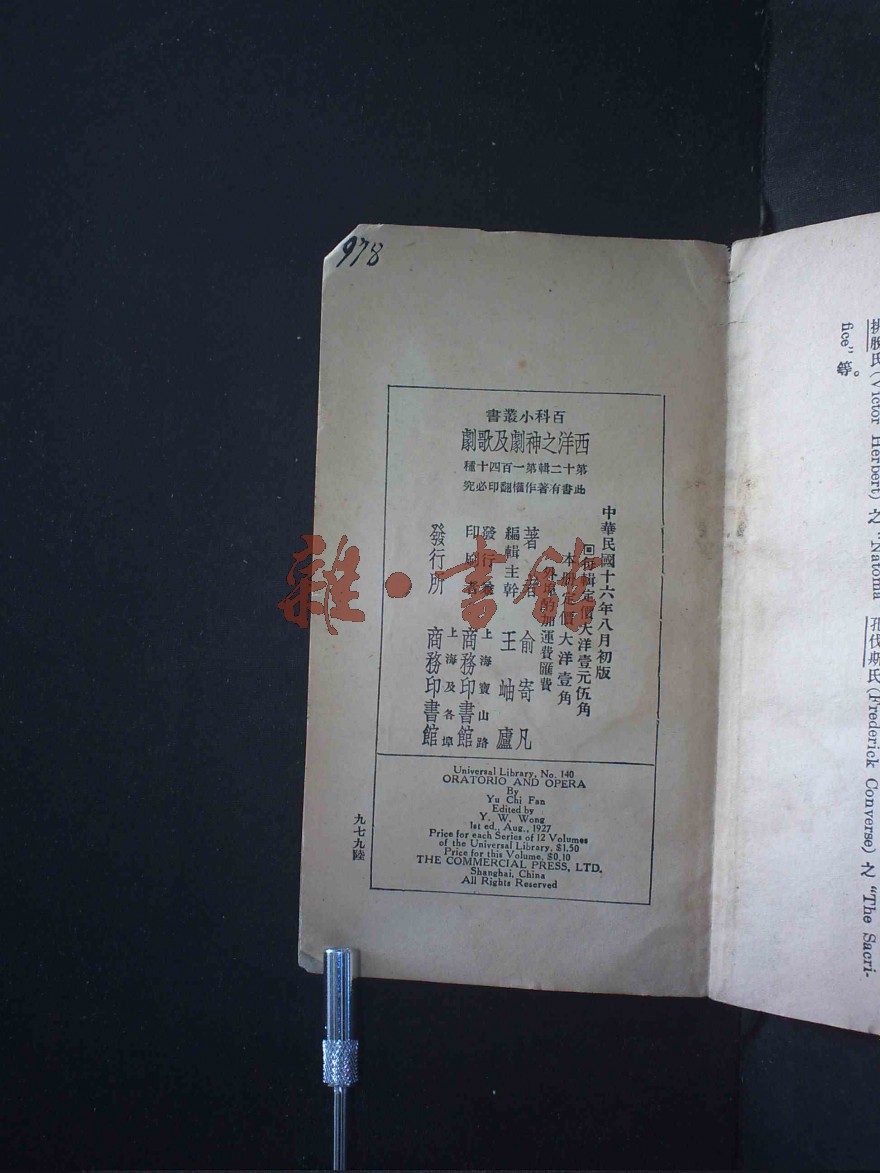 978
百科小叢書
西洋之神劇及歌劇
第十二輯第一百四十種
此書有著作權翻印必究
中華民國十六年八月初版
回每輯定價大洋壹元伍角
本册定價大洋壹角
外埠酌加運費匯費
著者 俞寄凡
編輯主幹 王岫廬
發行者 上海寶山路
印刷者 商務印書館
發行所 上海及各埠
商務印書館
Universal Library, No. 140
ORATORIO AND OPERA
By
Yu Chi Fan
Edited by
Y. W. Wong
1st ed., Aug., 1927
Price for each Series of 12 Volumes
of the Universal Library, $1.50
Price for this Volume, $0.10
THE COMMERCIAL PRESS, LTD.
Shanghai, China
All Rights Reserved
九七九陸
雜·書館
孔伐斯氏(Frederick Converse)之“The Sacri-
氏(Victor Herbert)之“Natoma
fice”等。